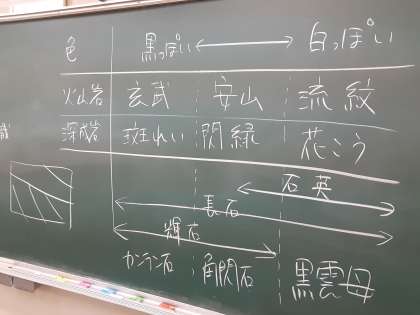 色 黒っぽい ⟷ 白っぽい
火山岩 玄武 安山 流紋
深成岩 斑れい 閃緑 花こう
石英
長石
輝石
カンラン石 角閃石 黒雲母